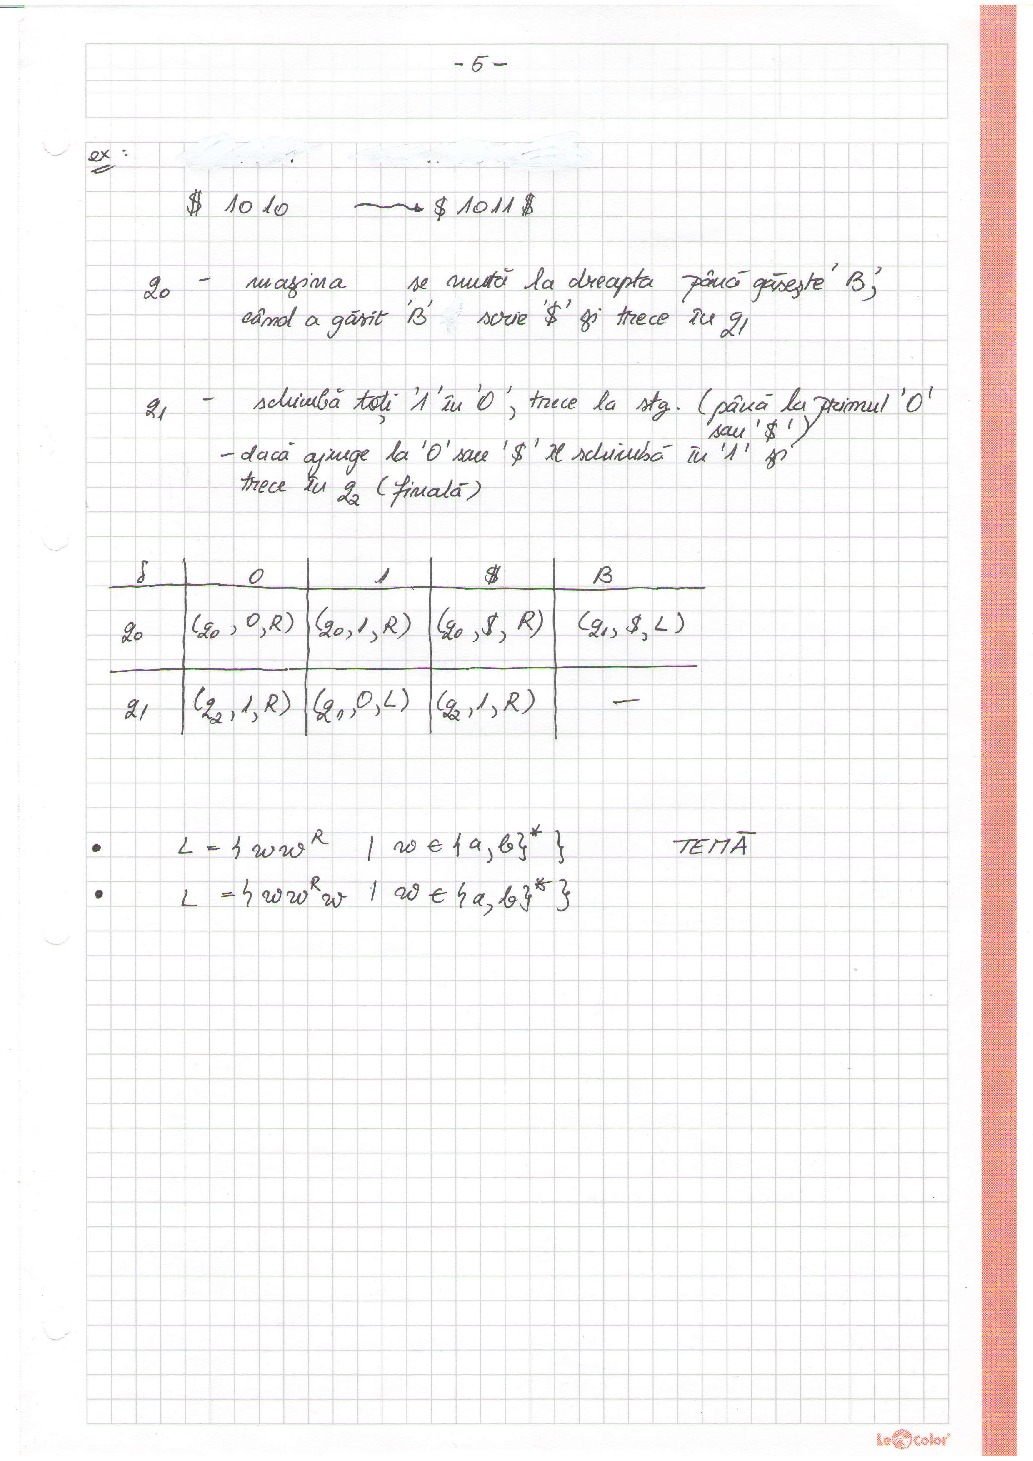 - 5 -
ex:
$ 1010 ⟶ $ 1011 $
q₀ - mașina se mută la dreapta până găsește 'B',
când a găsit 'B' scrie '$' și trece în q₁
q₁ - schimbă toți '1' în '0', trece la stg. (până la primul '0'
sau '$')
- dacă ajunge la '0' sau '$' îl schimbă în '1' și
trece în q₂ (finală)
δ 0 1 $ B
q₀ (q₀, 0, R) (q₀, 1, R) (q₀, $, R) (q₁, $, L)
q₁ (q₂, 1, R) (q₁, 0, L) (q₂, 1, R) —
• L = {wwᴿ | w ∈ {a, b}*} TEMĂ
• L = {wwᴿw | w ∈ {a, b}*}
Le Color